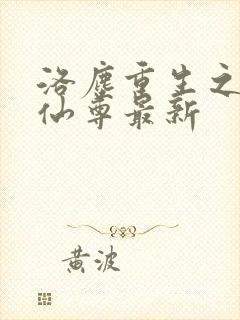 洛塵重生之
仙尊最新
黄波